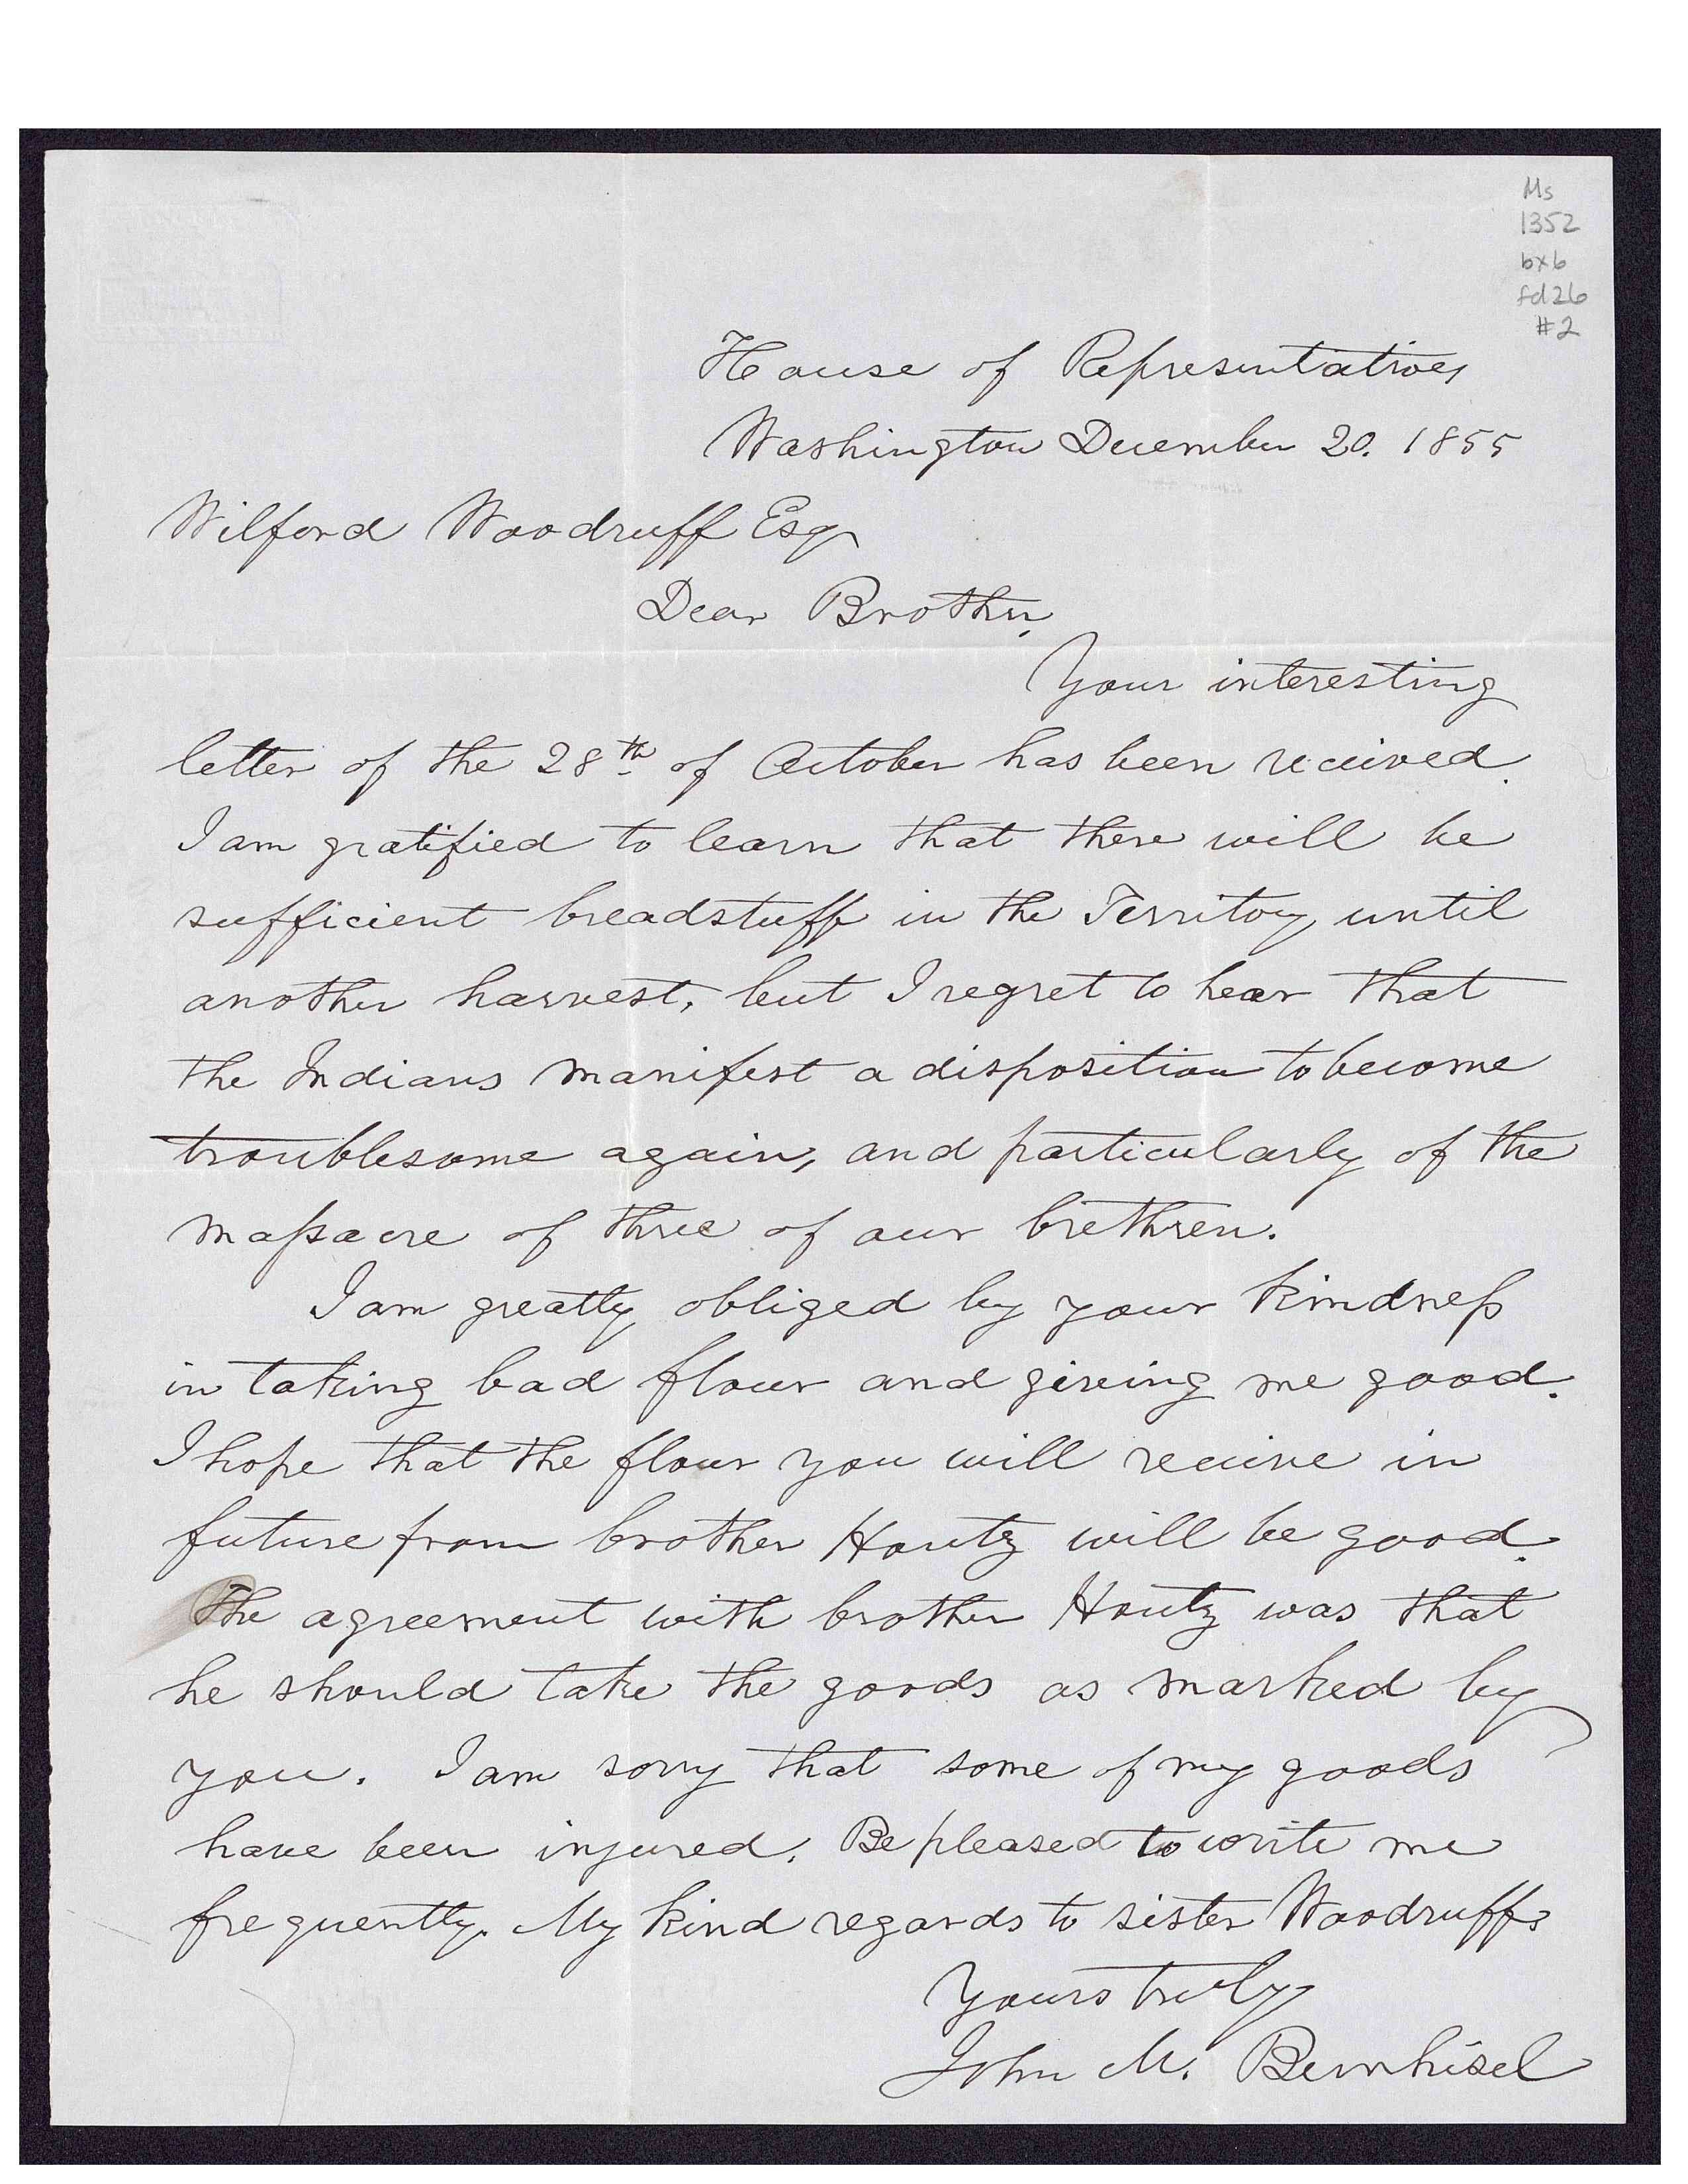 Ms
1352
bx6
fd26
#2
House of Representatives
Washington December 20. 1855
Wilford Woodruff Esq
Dear Brother,
Your interesting
letter of the 28th of October has been received.
I am gratified to learn that there will be
sufficient breadstuff in the Territory until
another harvest, but I regret to hear that
the Indians manifest a disposition to become
troublesome again, and particularly of the
massacre of three of our brethren.
I am greatly obliged by your kindness
in taking bad flour and giving me good.
I hope that the flour you will receive in
future from brother Houtz will be good.
The agreement with brother Houtz was that
he should take the goods as marked by
you. I am sorry that some of my goods
have been injured. Be pleased to write me
frequently. My kind regards to sister Woodruff.
Yours truly
John M. Bernhisel